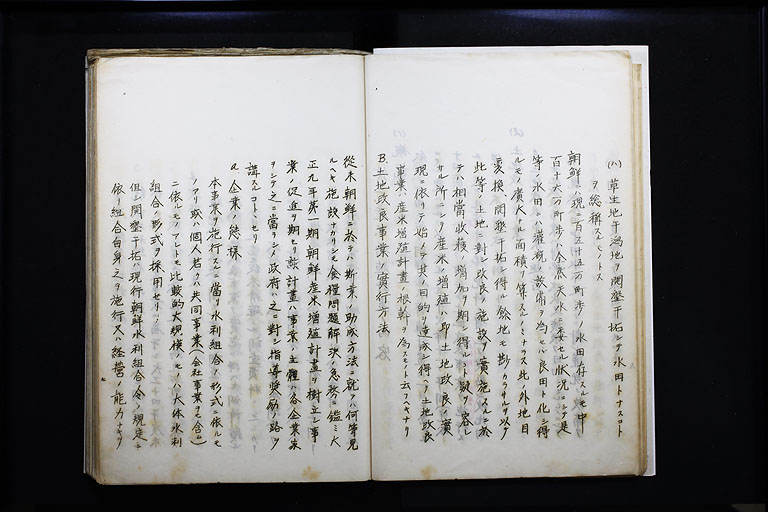 (ハ) 草生地干潟地ヲ開墾干拓シテ水田トナスコト
ヲ総稱スルモノトス
朝鮮ハ現ニ百五十五万町歩ノ水田存スルモ中
百十六万町歩ハ全然天水ニ委セル状況ニシテ是
等ノ水田ニハ灌漑ノ設備ヲ為セハ良田ト化シ得
ルモノ廣大ナル面積ヲ算スルノミナラス此ノ外地目
変換、開墾干拓シ得ル餘地モ勘カラサルヲ以テ
此等ノ土地ニ対シ改良ノ施設ヲ實施スルニ於
テハ相當収穫ノ増加ヲ期シ得ルハ疑ヲ容レ
サル所ニシテ産米ノ増殖ハ即土地改良ノ實
現ニ依リテ始メテ其ノ目的ヲ達成シ得ヘク土地改良
事業ハ産米増殖計畫ノ根幹ヲ為スモノト云フヘキナリ
B 土地改良事業ノ實行方法
從来朝鮮ニ於テハ斯業ノ助成方法ニ就テハ何等見
ルヘキ施設ナカリシモ食糧問題解決ノ急務ニ鑑ミ大
正九年第一期朝鮮産米増殖計畫ヲ樹立シ事
業ノ促進ヲ期セリ該計畫ハ事業ノ主體ハ各企業家
ヲシテ之ニ當ラシメ政府ハ之ニ對シ指導奨励ノ路ヲ
講スルコトヽセリ
a 企業ノ態様
本事業ヲ施行スルニ當リ水利組合ノ形式ニ依ルモ
ノアリ或ハ個人若クハ共同事業(会社事業ヲモ含ム)
ニ依ルモノアレトモ比較的大規模ノモノハ大体水利
組合ノ形式ヲ採用セリ
但シ開墾干拓ハ現行朝鮮水利組合令ノ規定ニ
依リ組合自身之ヲ施行又ハ経營ノ能力ナキヲ
七